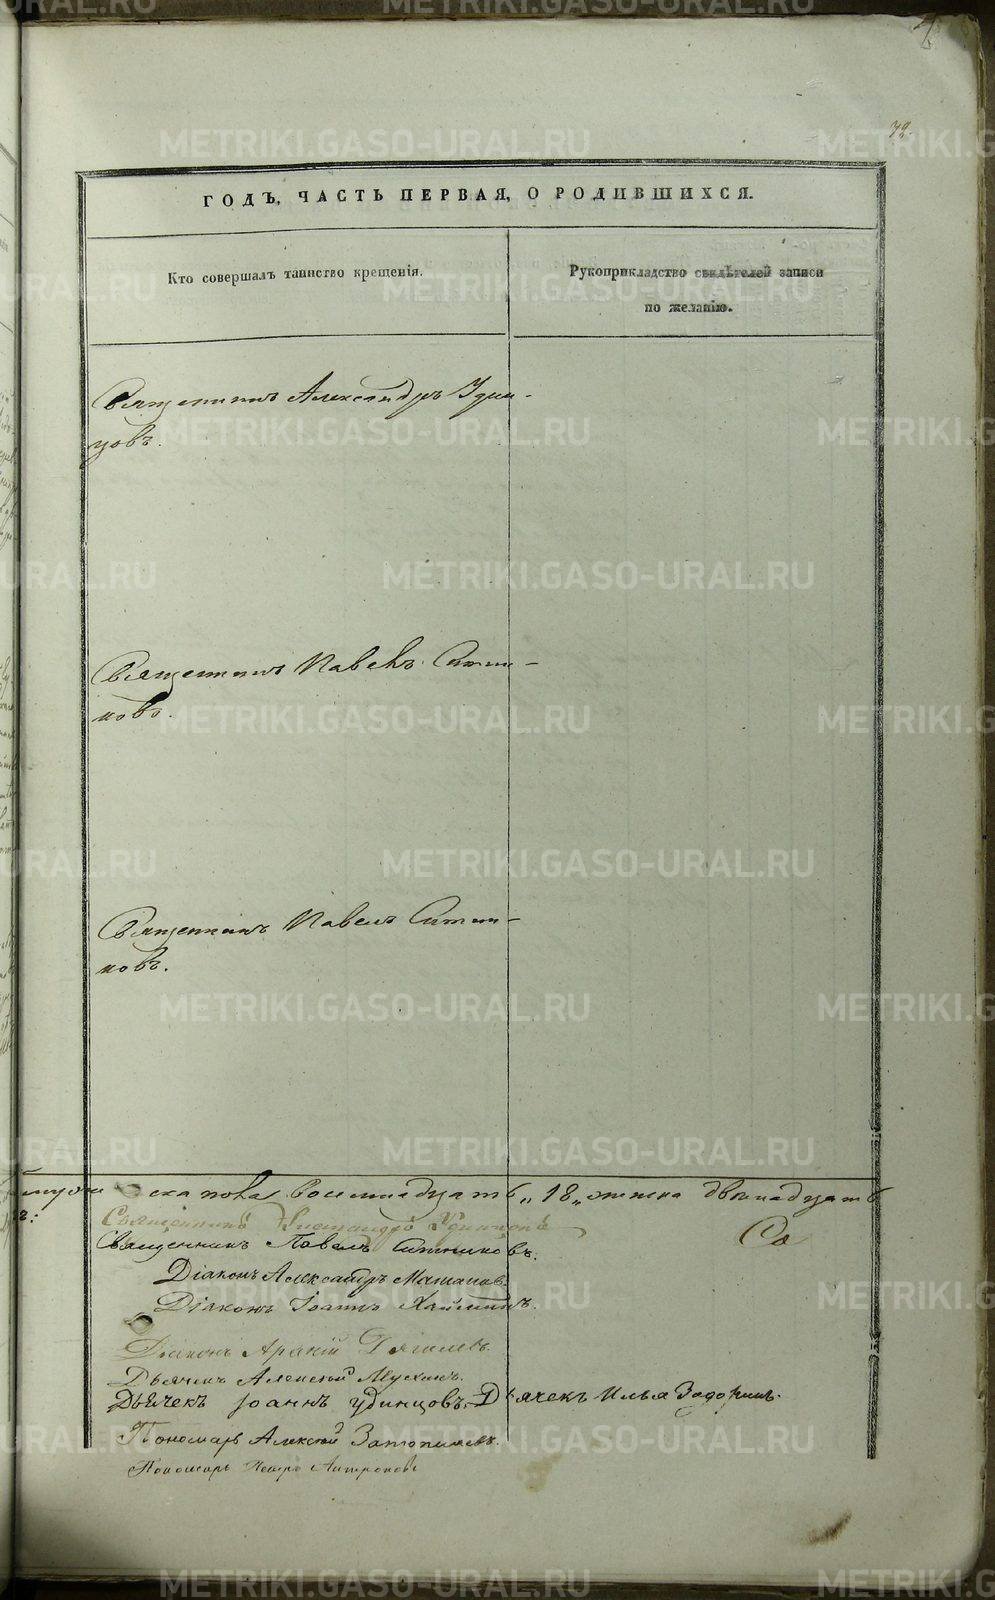 72.
ГОДЪ, ЧАСТЬ ПЕРВАЯ, О РОДИВШИХСЯ.
Кто совершалъ таинство крещенія.
Рукоприкладство свидѣтелей записи
по желанію.
Священникъ Александръ Удин-
цовъ.
Священникъ Павелъ Ситни-
ковъ.
Священникъ Павелъ Ситни-
ковъ.
пола восемнадцать „18„ женска двѣнадцать
Священникъ Александръ Удинцовъ
Священникъ Павелъ Ситниковъ.
Со
Діаконъ Александръ
Діаконъ Іоаннъ
Діаконъ
Дьячекъ Алексѣй
Дьячекъ Іоаннъ Удинцовъ. Дьячекъ Илья Задоринъ.
Пономарь Алексѣй
Пономарь Петръ
METRIKI.GASO-URAL.RU